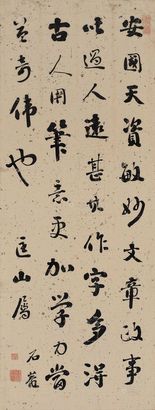 安國天資敏妙文章政事
皆過人遠甚故作字多得
古人用筆意更加学力當
益奇偉也 匡山屬
石菴